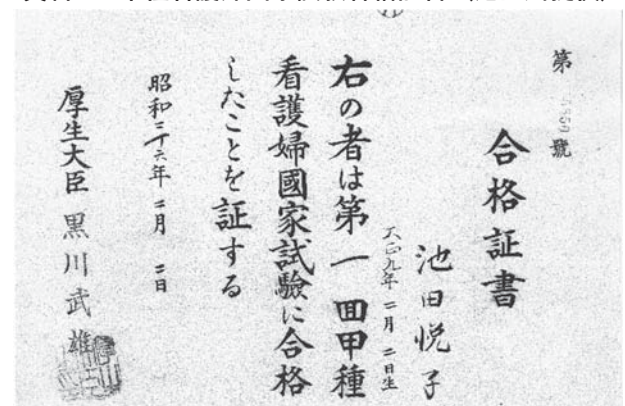 第 号
合格証書
池田悦子
大正九年 二月 二日生
右の者は第一回甲種
看護婦國家試驗に合格
したことを証する
昭和二十六年 二月 二日
厚生大臣 黒川武雄